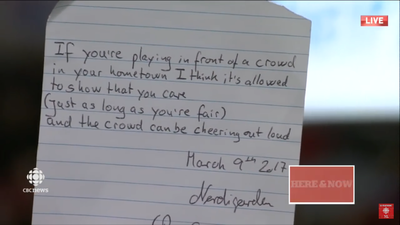 LIVE
If you're playing in front of a crowd
in your hometown I think it's allowed
to show that you care
(just as long as you're fair)
and the crowd can be cheering out loud
March 9th 2017
CBC NEWS
HERE & NOW